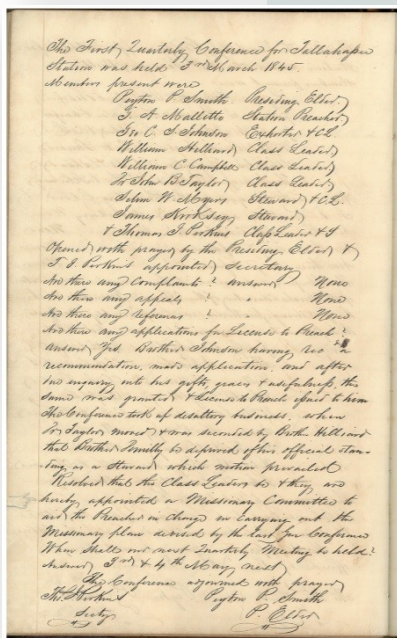 The First Quarterly Conference for Tallahassee
Station was held 3rd March 1845.
Members present were
Peyton P Smith Presiding Elder
T. A. Mallette Station Preacher
C. S Johnson Exhorter & C L
William Hilliard Class Leader
William C Campbell Class Leader
Dr John B Taylor Class Leader
John W Myers Steward & C L.
James Kirksey Steward
& Thomas J Perkins Class Leader & S
Opened with prayer by the Presiding Elder &
T J Perkins appointed Secretary
Are there any Complaints? answer None
Are there any appeals ? " None
Are there any references ? " None
Are there any applications for License to Preach?
answer Yes. Brother Johnson having a
recommendation, made application, and after
due inquiry into his gifts, graces & usefulness, the
same was granted & License to Preach issued to him
The Conference took up desultory business, when
Dr Taylor moved & was seconded by Brother Hilliard
that Brother be deprived of his official stan-
ding, as a Steward which motion prevailed
Resolved that the Class Leaders be & they are
hereby appointed a Missionary Committee to
aid the Preacher in charge in carrying out the
Missionary plan devised by the last Conference
When shall our next Quarterly Meeting be held?
Answer, 3rd & 4th May next
The Conference adjourned with prayer
Thos. J Perkins Peyton P. Smith
Secty P. Elder